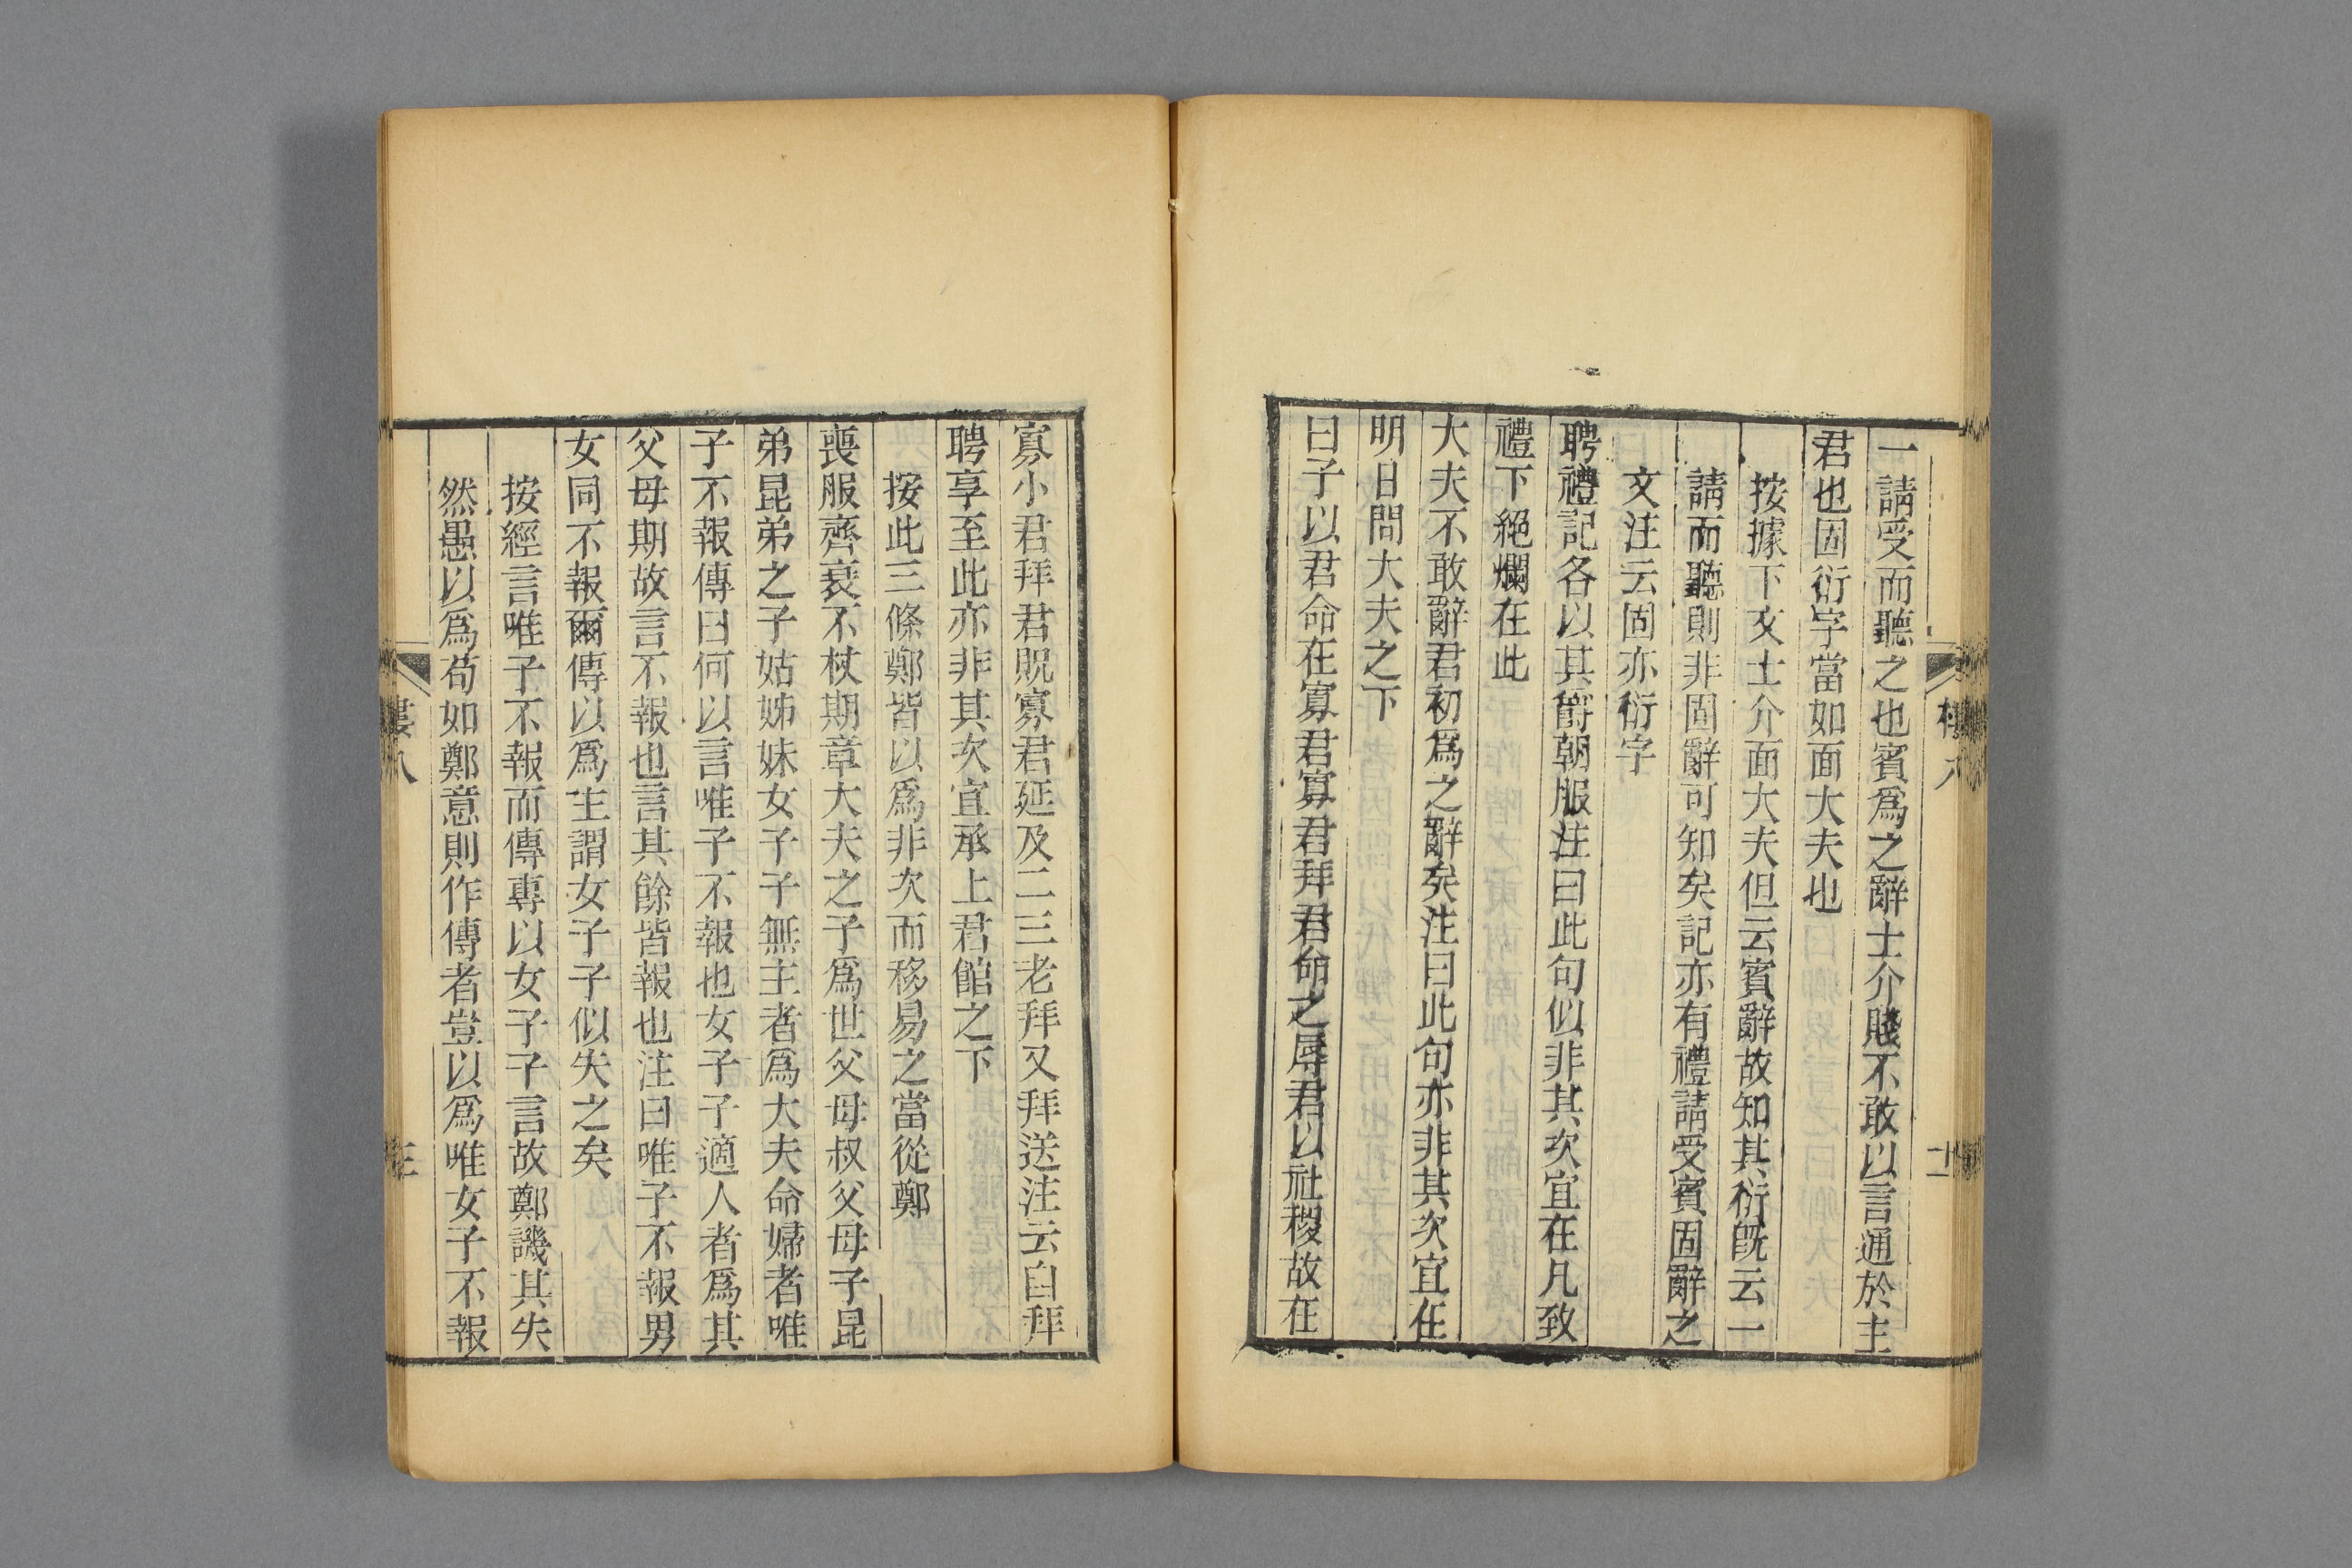 一請受而聽之也賓爲之辭士介賤不敢以言通於主
君也固衍字當如面大夫也
按據下文士介面大夫但云賓辭故知其衍旣云一
請而聽則非固辭可知矣記亦有禮請受賓固辭之
文注云固亦衍字
聘禮記各以其爵朝服注曰此句似非其次宜在凡致
禮下絕爛在此
大夫不敢辭君初爲之辭矣注曰此句亦非其次宜在
明日問大夫之下
曰子以君命在寡君寡君拜君命之辱君以社稷故在
寡小君拜君貺寡君延及二三老拜又拜送注云自拜
聘享至此亦非其次宜承上君館之下
按此三條鄭皆以爲非次而移易之當從鄭
喪服齊衰不杖期章大夫之子爲世父母叔父母子昆
弟昆弟之子姑姊妹女子子無主者爲大夫命婦者唯
子不報傳曰何以言唯子不報也女子子適人者爲其
父母期故言不報也言其餘皆報也注曰唯子不報男
女同不報爾傳以爲主謂女子子似失之矣
按經言唯子不報而傳專以女子子言故鄭譏其失
然愚以爲苟如鄭意則作傳者豈以爲唯女子不報